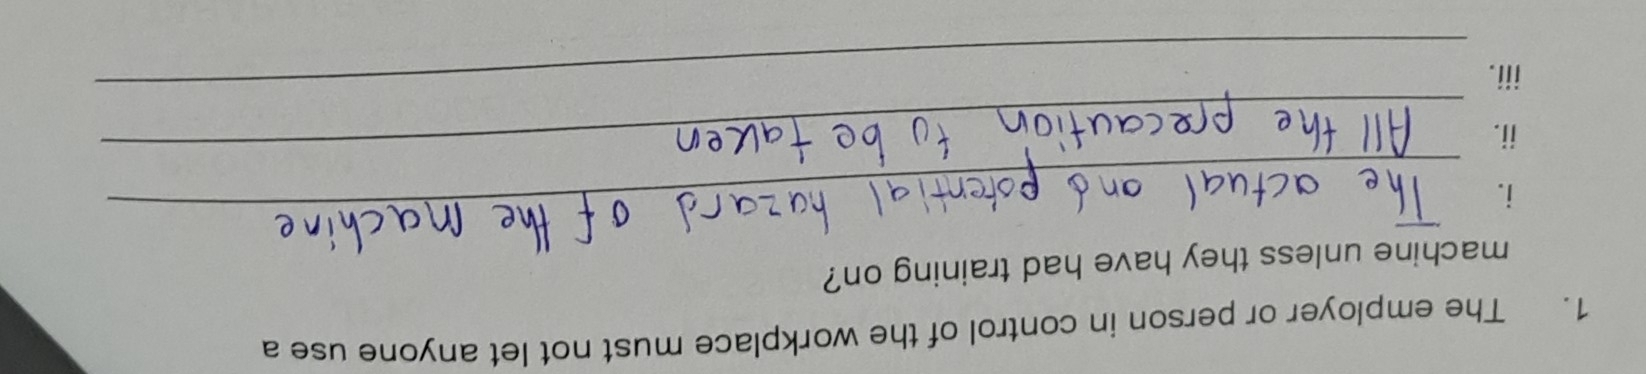 1. The employer or person in control of the workplace must not let anyone use a
machine unless they have had training on?
i. The actual and potential hazard of the machine
ii. All the precaution to be taken
iii.